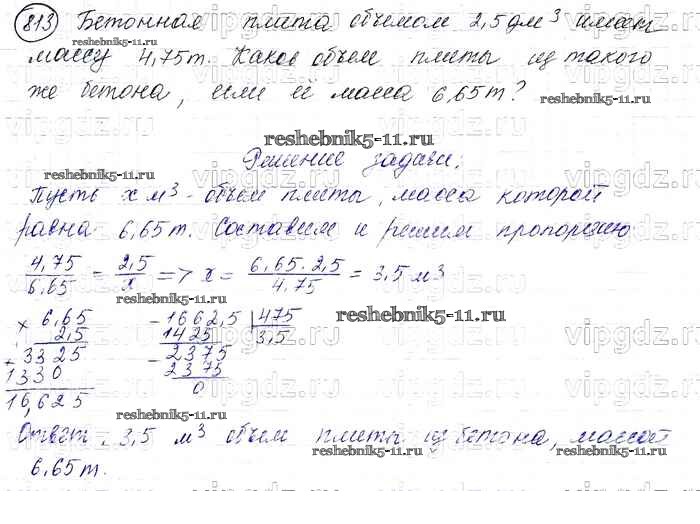 813 Бетонная плита объемом 2,5 дм³ имеет
массу 4,75т. Каков объем плиты из такого
же бетона, если её масса 6,65т?
reshebnik5-11.ru
reshebnik5-11.ru
reshebnik5-11.ru
Решение задачи:
Пусть x м³ - объем плиты, масса которой
равна 6,65т. Составим и решим пропорцию
4,75/6,65 = 2,5/x => x = 6,65·2,5/4,75 = 3,5 м³
× 6,65 - 1662,5 | 475
2,5 1425 3,5
reshebnik5-11.ru
+ 3325 - 2375
1330 2375
16,625 0
reshebnik5-11.ru
Ответ: 3,5 м³ объем плиты из бетона, массой
reshebnik5-11.ru
reshebnik5-11.ru
6,65т.
vipgdz.ru